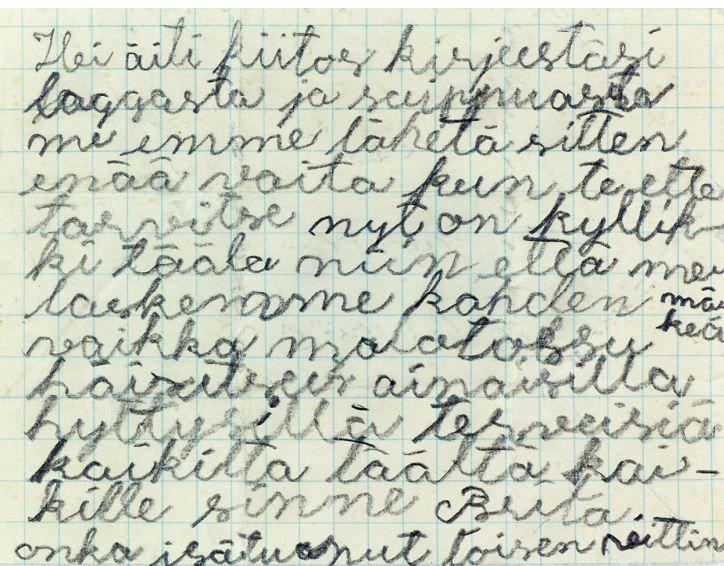 Hei äiti kiitos kirjeestäsi
laggasta ja saippuasta
me emme lähetä sitten
enää voita kun te ette
tarvitse nyt on kyllik-
ki täälä niin että me
laskemme kahden mä
keä
vaikka
häiritsee ainaisilla
hyttysillä terveisiä
kaikilta täältä kai-
kille sinne Brita
onko isä tuonut toisen